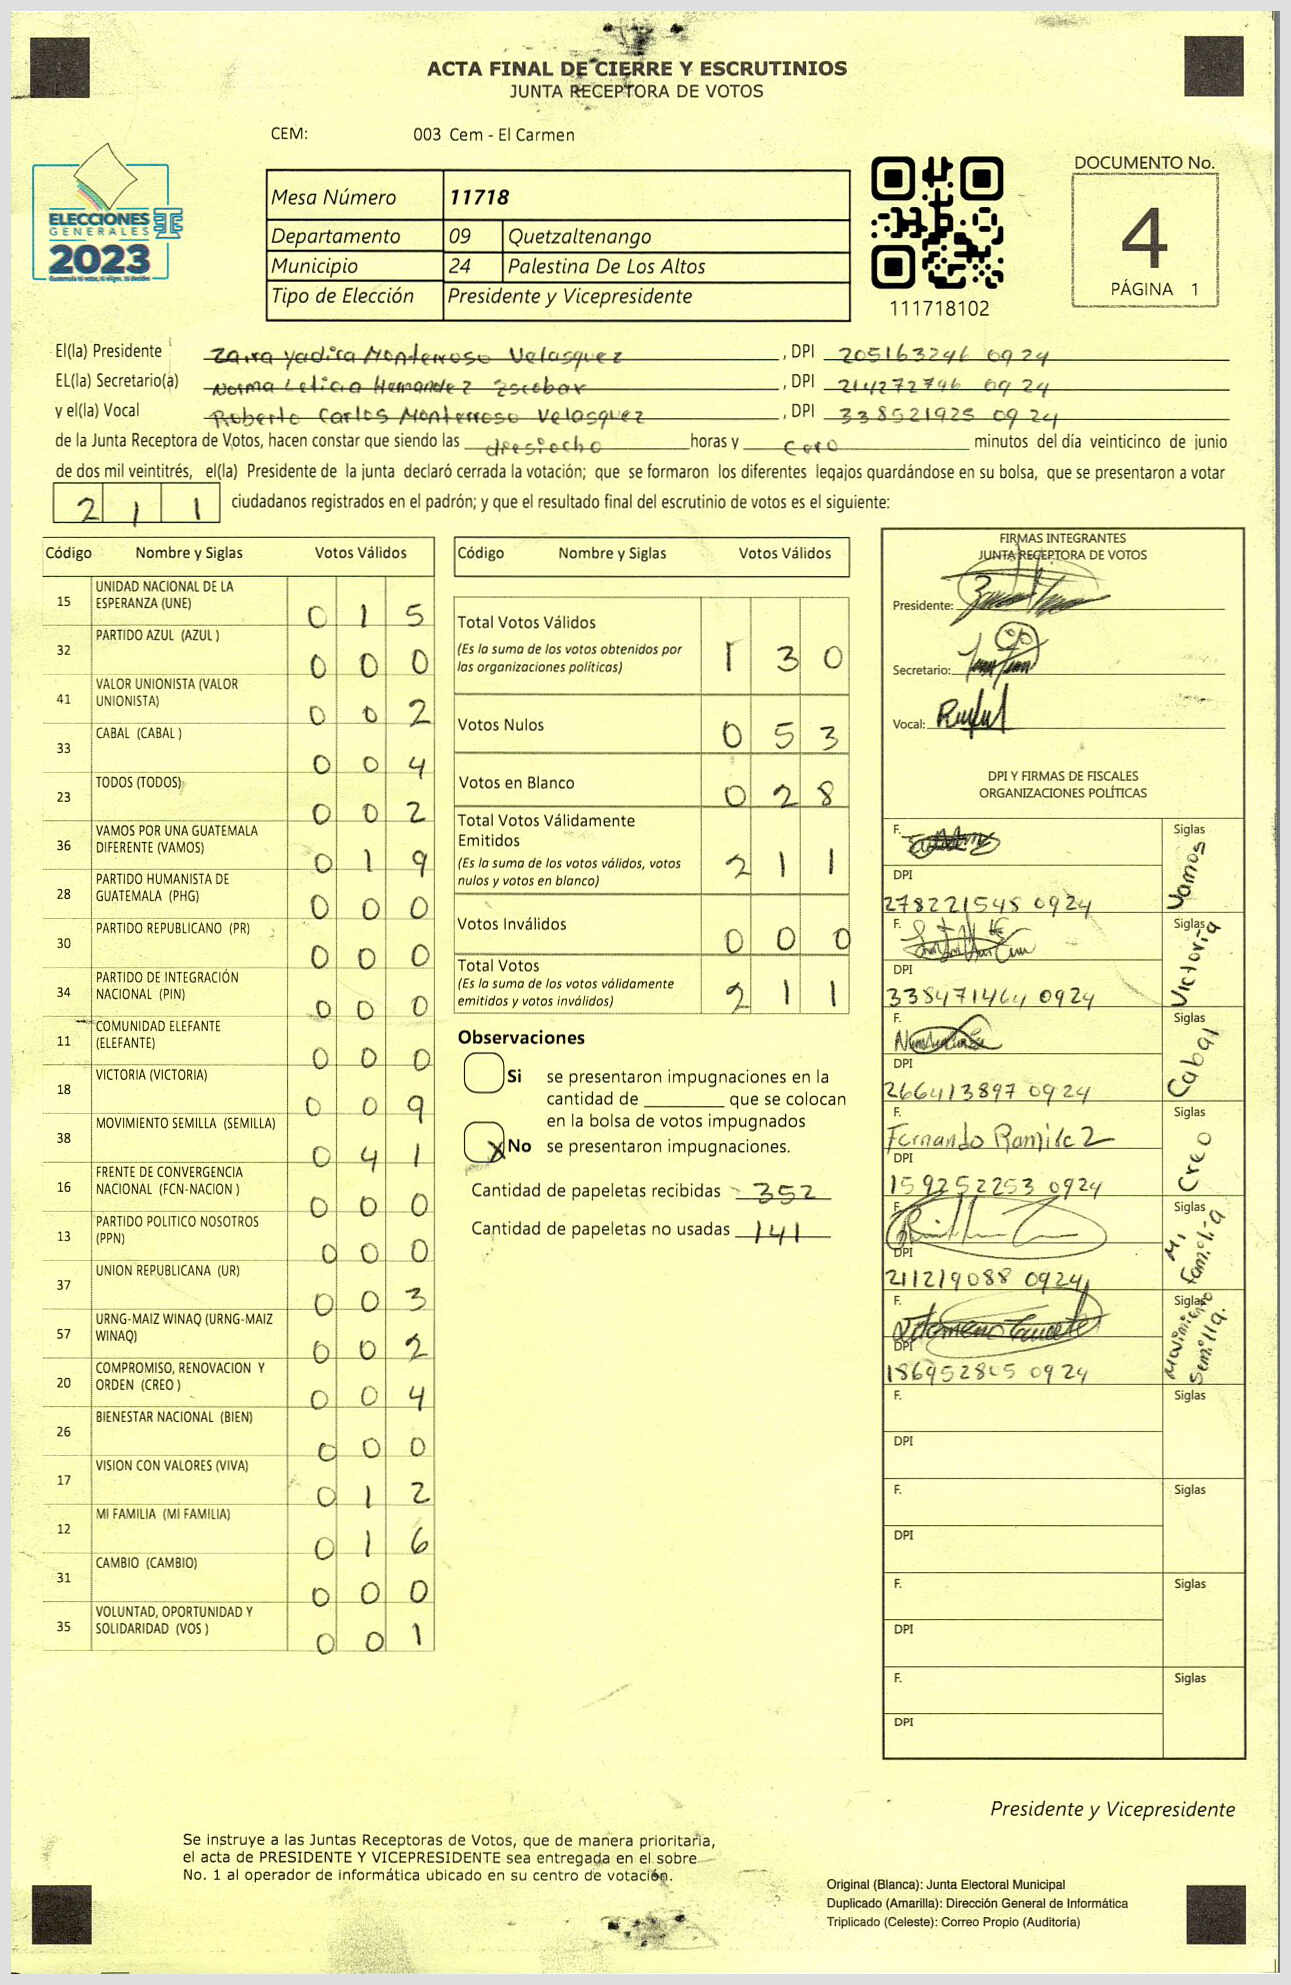 ACTA FINAL DE CIERRE Y ESCRUTINIOS
JUNTA RECEPTORA DE VOTOS
CEM: 003 Cem - El Carmen
ELECCIONES
GENERALES
2023
Mesa Número 11718
Departamento 09 Quetzaltenango
Municipio 24 Palestina De Los Altos
Tipo de Elección Presidente y Vicepresidente
111718102
DOCUMENTO No.
4
PÁGINA 1
El(la) Presidente Zaira Yadira Monterroso Velasquez , DPI 205163246 0924
EL(la) Secretario(a) Norma Leticia Hernandez Escobar , DPI 214272796 0924
y el(la) Vocal Roberto Carlos Monterroso Velasquez , DPI 338521925 0924
de la Junta Receptora de Votos, hacen constar que siendo las diesiocho horas y cero minutos del día veinticinco de junio
de dos mil veintitrés, el(la) Presidente de la junta declaró cerrada la votación; que se formaron los diferentes legajos guardándose en su bolsa, que se presentaron a votar
211 ciudadanos registrados en el padrón; y que el resultado final del escrutinio de votos es el siguiente:
Código Nombre y Siglas Votos Válidos
15 UNIDAD NACIONAL DE LA ESPERANZA (UNE) 015
32 PARTIDO AZUL (AZUL ) 000
41 VALOR UNIONISTA (VALOR UNIONISTA) 002
33 CABAL (CABAL ) 004
23 TODOS (TODOS) 002
36 VAMOS POR UNA GUATEMALA DIFERENTE (VAMOS) 019
28 PARTIDO HUMANISTA DE GUATEMALA (PHG) 000
30 PARTIDO REPUBLICANO (PR) 000
34 PARTIDO DE INTEGRACIÓN NACIONAL (PIN) 000
11 COMUNIDAD ELEFANTE (ELEFANTE) 000
18 VICTORIA (VICTORIA) 009
38 MOVIMIENTO SEMILLA (SEMILLA) 041
16 FRENTE DE CONVERGENCIA NACIONAL (FCN-NACION ) 000
13 PARTIDO POLITICO NOSOTROS (PPN) 000
37 UNION REPUBLICANA (UR) 003
57 URNG-MAIZ WINAQ (URNG-MAIZ WINAQ) 002
20 COMPROMISO, RENOVACION Y ORDEN (CREO ) 004
26 BIENESTAR NACIONAL (BIEN) 000
17 VISION CON VALORES (VIVA) 012
12 MI FAMILIA (MI FAMILIA) 016
31 CAMBIO (CAMBIO) 000
35 VOLUNTAD, OPORTUNIDAD Y SOLIDARIDAD (VOS ) 001
Código Nombre y Siglas Votos Válidos
Total Votos Válidos 130
(Es la suma de los votos obtenidos por
las organizaciones políticas)
Votos Nulos 053
Votos en Blanco 028
Total Votos Válidamente
Emitidos 211
(Es la suma de los votos válidos, votos
nulos y votos en blanco)
Votos Inválidos 000
Total Votos 211
(Es la suma de los votos válidamente
emitidos y votos inválidos)
Observaciones
Si se presentaron impugnaciones en la
cantidad de ________ que se colocan
en la bolsa de votos impugnados
X No se presentaron impugnaciones.
Cantidad de papeletas recibidas 352
Cantidad de papeletas no usadas 141
FIRMAS INTEGRANTES
JUNTA RECEPTORA DE VOTOS
Presidente:
Secretario:
Vocal:
DPI Y FIRMAS DE FISCALES
ORGANIZACIONES POLÍTICAS
F. Siglas Vamos
DPI
278221545 0924
F. Siglas Victoria
DPI
338471464 0924
F. Siglas Cabal
DPI
266413897 0924
F. Siglas Creo
Fernando Ramirez
DPI
159252253 0924
F. Siglas Mi Familia
DPI
211219088 0924
F. Siglas Movimiento Semilla.
DPI
186952805 0924
F. Siglas
DPI
F. Siglas
DPI
F. Siglas
DPI
F. Siglas
DPI
Presidente y Vicepresidente
Se instruye a las Juntas Receptoras de Votos, que de manera prioritaria,
el acta de PRESIDENTE Y VICEPRESIDENTE sea entregada en el sobre
No. 1 al operador de informática ubicado en su centro de votación.
Original (Blanca): Junta Electoral Municipal
Duplicado (Amarilla): Dirección General de Informática
Triplicado (Celeste): Correo Propio (Auditoría)